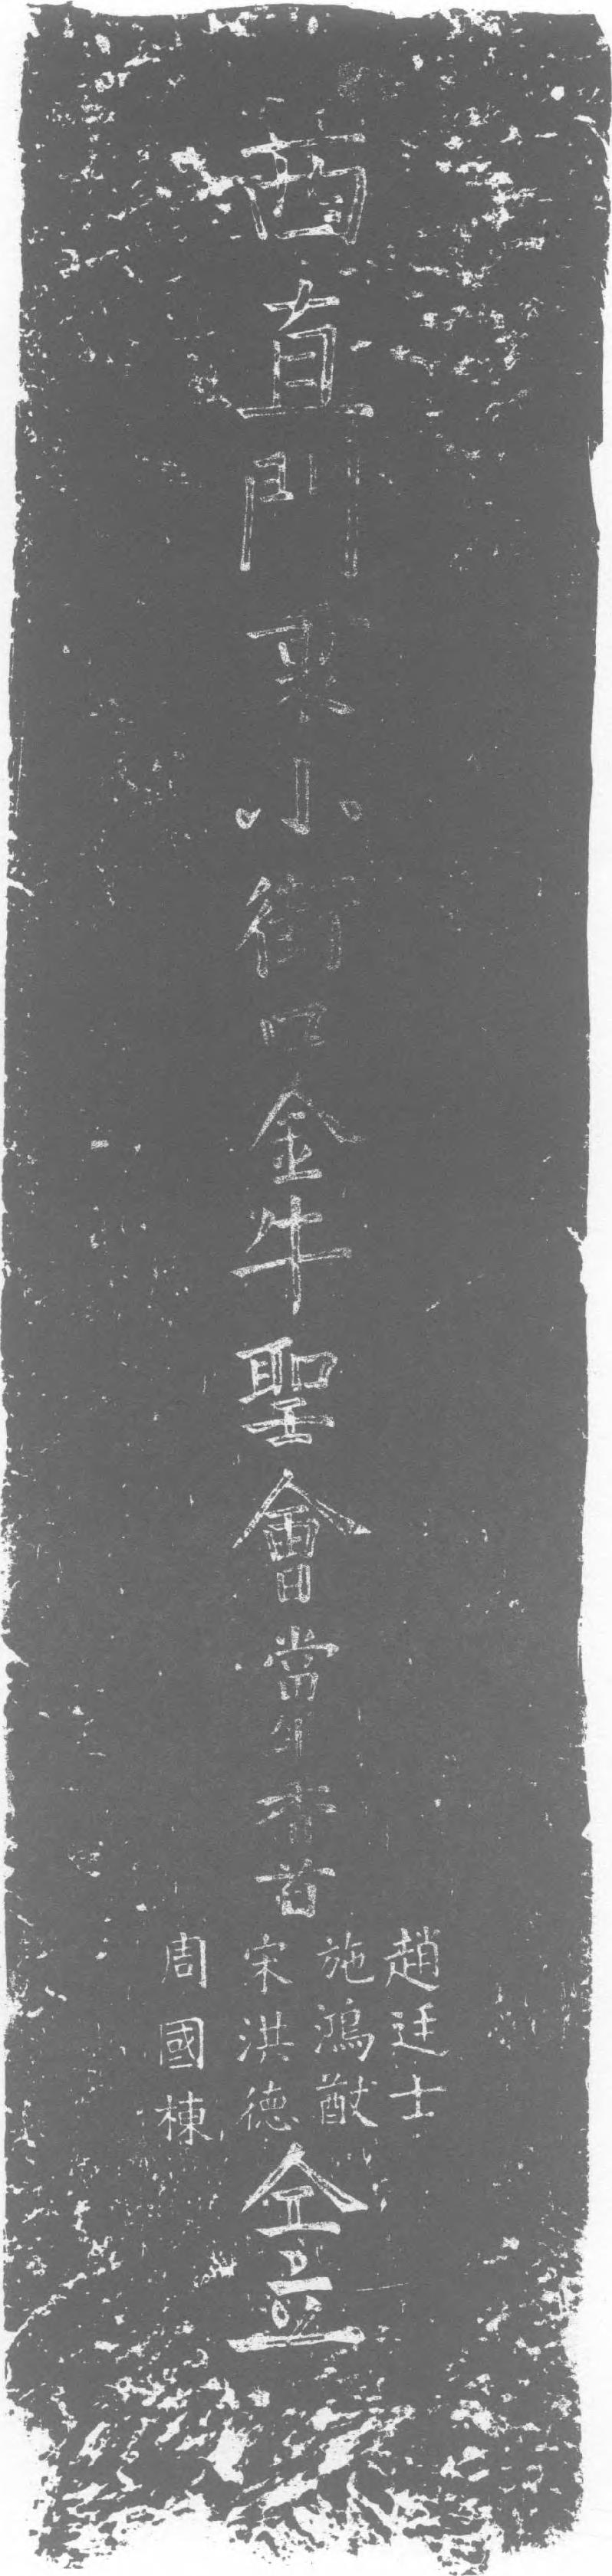 西直門裏小街口金牛聖會當年香首
趙廷士
施鴻猷
宋洪德
周國棟
仝立